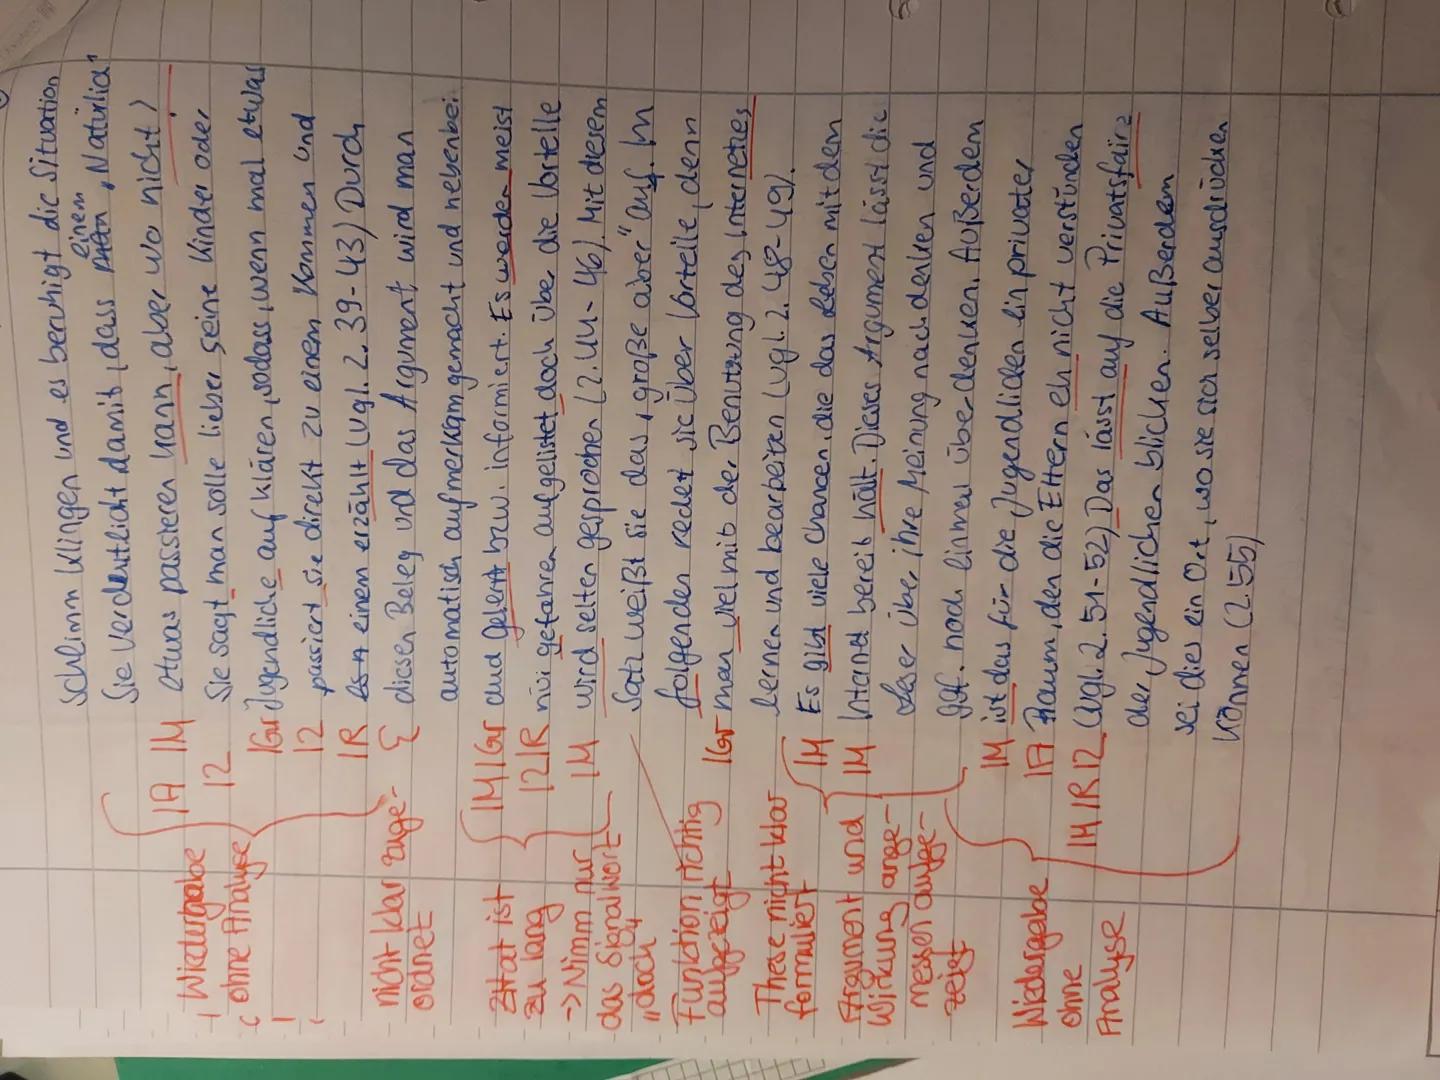 schlimm klingen und es beruhigt die Situation
einem
Sie verdeutlicht damit, dass „Natürlich
etwas passieren kann, aber wo nicht?
Sie sagt man solle lieber seine Kinder oder
Jugendliche aufklären, sodass, wenn mal etwas
passiert sie direkt zu einem kommen und
einem erzählt (vgl. Z. 39-43) Durch
diesen Beleg und das Argument wird man
automatisch aufmerksam gemacht und nebenbei
und bzw. informiert. Es werden meist
nur gefahren aufgelistet doch über die Vorteile
wird selten gesprochen (Z. 44-46). Mit diesen
Satz weißt sie das „große aber" auf. Im
folgenden redet sie über Vorteile, denn
man viel mit der Benutzung des Internetes
lernen und bearbeiten (vgl. Z. 48-49).
Es gibt viele Chancen, die das Leben mit dem
Internet bereit hält. Dieses Argument lässt die
Leser über ihre Meinung nachdenken und
ggf. noch einmal überdenken. Außerdem
ist das für die Jugendlichen ein privater
Raum, den die Eltern eh nicht verstünden
(vgl. Z. 51-52) Das lässt auf die Privatsfäire
der Jugendlichen blicken. Außerdem
sei dies ein Ort, wo sie sich selber ausdrücken
können (Z. 55)
1A 1M
1Z
1Gr
1Z
1R
Σ
1M 1Gr
1Z 1R
1M
1Gr
1M
1M
1M
1A
1M 1R 1Z
Wiedergabe
ohne Analyse
nicht klar zuge-
ordnet
Zitat ist
zu lang
-> Nimm nur
das Signalwort
„doch"
Funktion richtig
aufgezeigt
These nicht klar
formuliert
Argument und
Wirkung ange-
messen aufge-
zeigt
Wiedergabe
ohne
Analyse